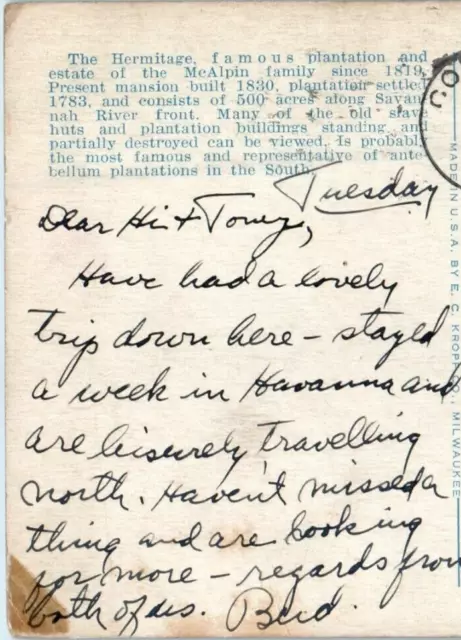 The Hermitage, famous plantation and
estate of the McAlpin family since 1819.
Present mansion built 1830, plantation settled
1783, and consists of 500 acres along Savan-
nah River front. Many of the old slave
huts and plantation buildings standing and
partially destroyed can be viewed. Is probably
the most famous and representative of ante-
bellum plantations in the South.
Tuesday
Dear Hi + Tony,
Have had a lovely
trip down here – stayed
a week in Havanna and
are leisurely travelling
north. Haven't missed a
thing and are looking
for more – regards from
both of us. Bud.
CO
MADE IN U.S.A. BY E. C. KROPP CO., MILWAUKEE